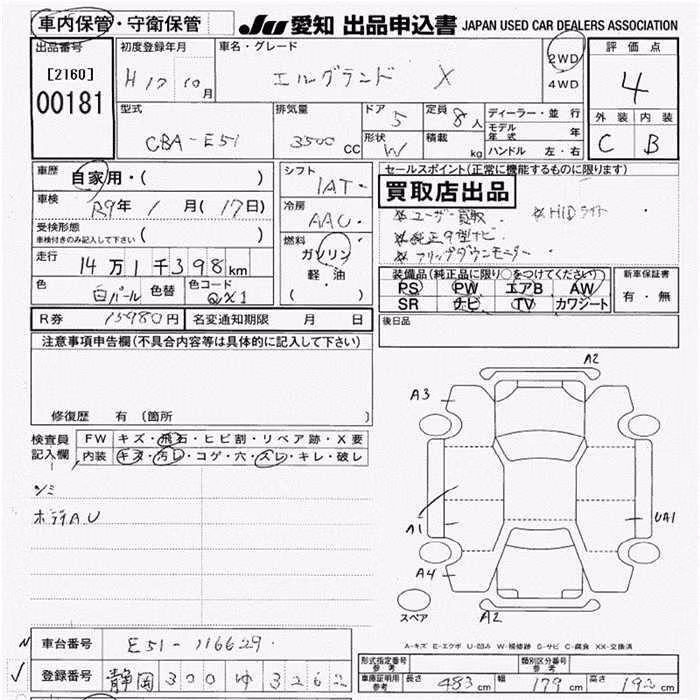 車内保管・守衛保管
JU 愛知 出品申込書 JAPAN USED CAR DEALERS ASSOCIATION
出品番号
[2160]
00181
初度登録年月
H 17 10月
車名・グレード
エルグランド X
2WD
4WD
評価点
4
外装 内装
C B
型式
CBA-E51
排気量
3500 CC
ドア 5
形状 W
定員 8人
積載 kg
ディーラー・並行
モデル年式 年
ハンドル 左・右
車歴 自家用・( )
車検 R9年 1月(17日)
受検形態
車検付きのみ記入して下さい ( )
走行 14万1千398km
色 白パール 色替 色コード QX1
シフト IAT
冷房 AAC
燃料
ガソリン
軽・油
( )
セールスポイント(正常に機能するものに限ります)
買取店出品
※ユーザー買取 ※HIDライト
※純正9型ナビ
※フリップダウンモニター
装備品(純正品に限り○をつけてください)
PS PW エアB AW
SR ナビ TV カワシート
新車保証書
有・無
R券 15980円 名変通知期限 月 日
後日品
注意事項申告欄(不具合内容等は具体的に記入して下さい)
修復歴 有 (箇所 )
検査員記入欄
FW キズ・飛石・ヒビ割・リペア跡・X要
内装 キズ・汚レ・コゲ・穴・スレ・キレ・破レ
シミ
ボデーA.U
A2
A3
A1
UA1
A4
A2
スペア
A-キズ E-エクボ U-凹み W-補修跡 S-サビ C-腐食 XX-交換済
車台番号 E51-116629
登録番号 静岡 300 ゆ 3262
形式指定番号 参考
類別区分番号 参考
車庫証明用 参考 長さ 483cm 幅 179cm 高さ 192cm